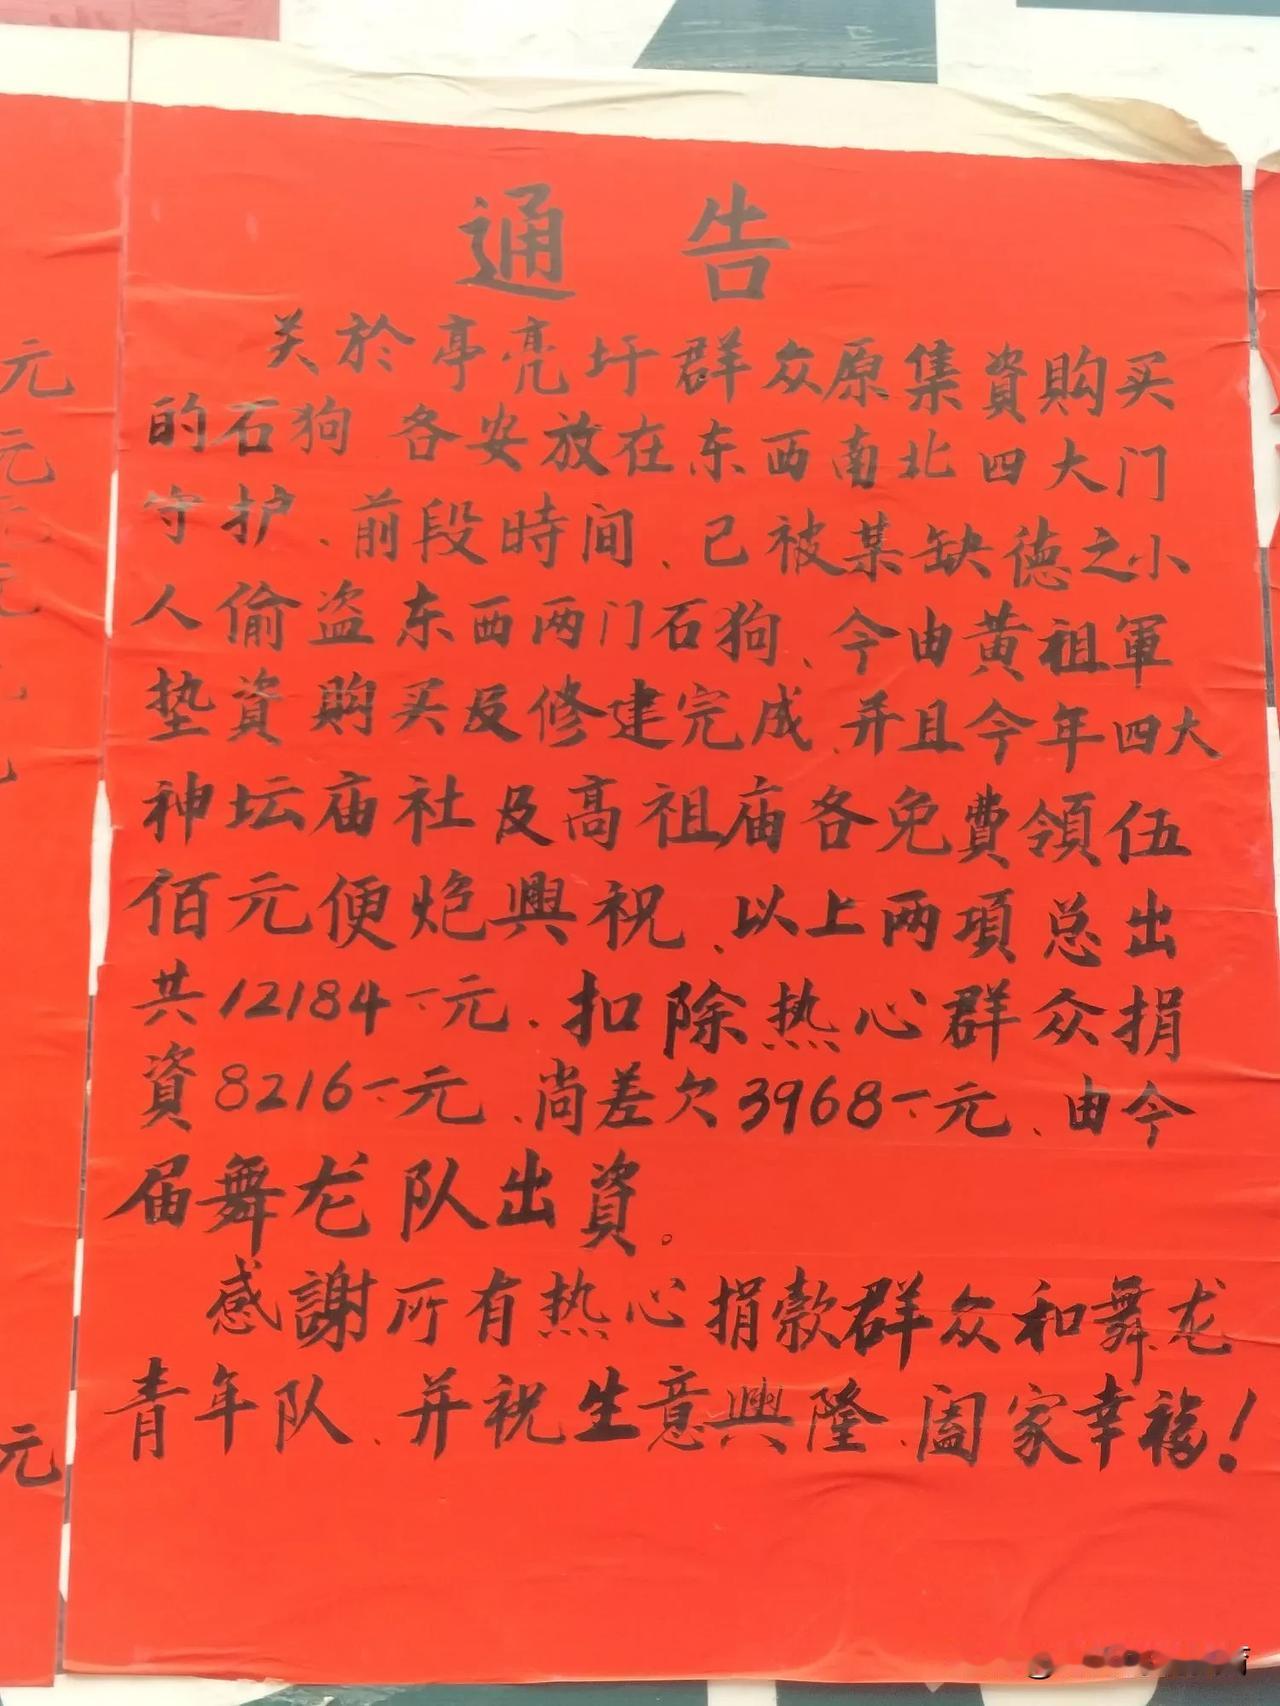 通告
关於亭亮圩群众原集資購买
的石狗 各安放在东西南北四大门
守护、前段時间、已被某缺德之小
人偷盗东西两门石狗、今由黄祖軍
垫資購买及修建完成、并且今年四大
神坛庙社及高祖庙各免費領伍
佰元便炮興祝、以上两項总出
共12184元、扣除热心群众捐
資8216元、尚差欠3968元、由今
届舞龙队出資。
感謝所有热心捐款群众和舞龙
青年队、并祝生意興隆、阖家幸福！
元
元
元
元